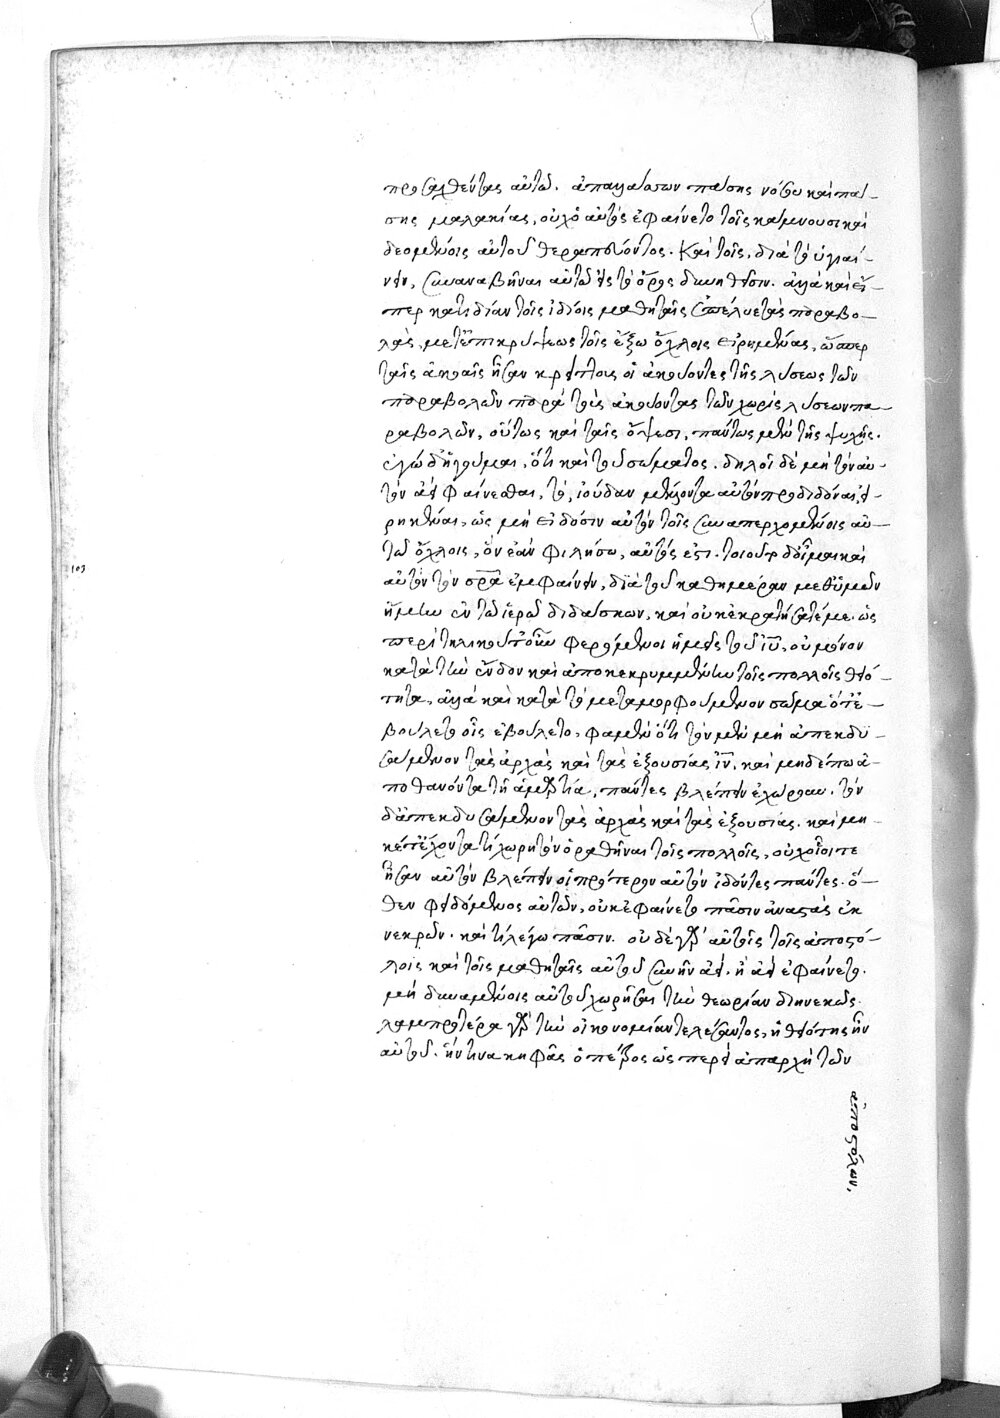 προσελθόντας αὐτῶ. ἀπαλλάσσων πάσης νόσου καὶ πά-
σης μαλακίας, οὐχ ὁ αὐτὸς ἐφαίνετο τοῖς κάμνουσι καὶ
δεομένοις αὐτοῦ θεραπεύοντος. καὶ τοῖς, διὰ τὸ ὑγιαί-
νειν, συναναβῆναι αὐτῶ εἰς τὸ ὄρος δυνηθεῖσιν. ἀλλὰ καὶ εἴ-
περ κατ' ἰδίαν τοῖς ἰδίοις μαθηταῖς ἀπέλυε τὰς παραβο-
λὰς, μετ' ἐπικρύψεως τοῖς ἔξω ὄχλοις εἰρημένας, ὥσπερ
ταῖς ἀκοαῖς ἦσαν κρείττους οἱ ἀκούοντες τῆς λύσεως τῶν
παραβολῶν παρὰ τοὺς ἀκούοντας τῶν χωρὶς λύσεων πα-
ραβολῶν, οὕτως καὶ ταῖς ὄψεσι, πάντως μὲν τῆς ψυχῆς.
ἐγὼ δ' ἡγοῦμαι, ὅτι καὶ τοῦ σώματος. δηλοῖ δὲ μὴ τὸν αὐ-
τὸν ἀεὶ φαίνεσθαι, τὸ, ἰούδαν μέλλοντα αὐτὸν προδιδόναι, εἰ-
ρηκέναι, ὡς μὴ εἰδόσιν αὐτὸν τοῖς συναπερχομένοις αὐ-
τῶ ὄχλοις, ὃν ἐὰν φιλήσω, αὐτός ἐστι. τοιοῦτο δ' οἶμαι καὶ
αὐτὸν τὸν σρα ἐμφαίνειν, διὰ τοῦ καθημέραν μεθ' ὑμῶν
ἤμην ἐν τῶ ἱερῶ διδάσκων, καὶ οὐκ ἐκρατήσατέ με. ὡς
περὶ τηλικούτου οὖν φερόμενοι ἡμεῖς τοῦ ιυ, οὐ μόνον
κατὰ τὴν ἔνδον καὶ ἀποκεκρυμμένην τοῖς πολλοῖς θειό-
τητα, ἀλλὰ καὶ κατὰ τὸ μεταμορφούμενον σῶμα ὅτε ἐ-
βούλετο οἷς ἐβούλετο, φαμὲν ὅτι τὸν μὲν μὴ ἀπεκδυ-
σάμενον τὰς ἀρχὰς καὶ τὰς ἐξουσίας ιν, καὶ μηδέπω ἀ-
ποθανόντα τῆ ἁμαρτία, πάντες βλέπειν ἐχώρουν. τὸν
δ' ἀπεκδυσάμενον τὰς ἀρχὰς καὶ τὰς ἐξουσίας. καὶ μη-
κέτ' ἔχοντα τὶ χωρητὸν ὁραθῆναι τοῖς πολλοῖς, οὐχ οἷοί τε
ἦσαν αὐτὸν βλέπειν οἱ πρότερον αὐτὸν ἰδόντες πάντες. ὅ-
θεν φειδόμενος αὐτῶν, οὐκ ἐφαίνετο πᾶσιν ἀναστὰς ἐκ
νεκρῶν. καὶ τί λέγω πᾶσιν. οὐδὲ γὰρ αὐτοῖς τοῖς ἀποστό-
λοις καὶ τοῖς μαθηταῖς αὐτοῦ συνῆν ἀεὶ. ἢ ἀεὶ ἐφαίνετο.
μὴ δυναμένοις αὐτοῦ χωρῆσαι τὴν θεωρίαν διηνεκῶς.
λαμπροτέρα γὰρ τὴν οἰκονομίαν τελέσαντος, ἡ θειότης ἦν
αὐτοῦ. ἥντινα κηφᾶς ὁ πέτρος ὡς περεὶ ἀπαρχὴ τῶν
ἀποστόλων,
103